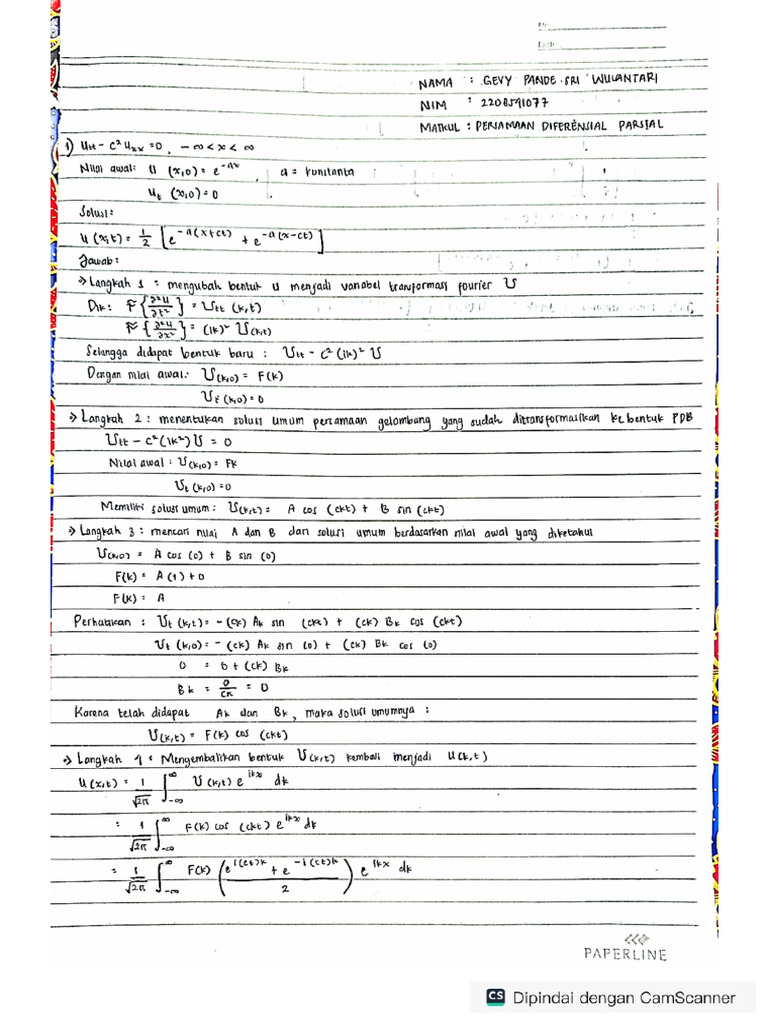 No.
Date
NAMA : GEVY PANDE SRI WULANTARI
NIM : 2208541077
MATKUL : PERSAMAAN DIFERENSIAL PARSIAL
1) Utt - C² Uxx = 0 , -∞ < x < ∞
Nilai awal: U (x,0) = e^-ax , a = konstanta
Ut (x,0) = 0
Solusi:
U (x,t) = 1/2 [e^-a(x+ct) + e^-a(x-ct)]
Jawab :
→ Langkah 1 : mengubah bentuk U menjadi variabel transformasi fourier U
Dik: F {∂²U/∂t²} = Utt (k,t)
F {∂²U/∂x²} = (ik)² U(k,t)
Sehingga didapat bentuk baru : Utt - C² (ik)² U
Dengan nilai awal: U(k,0) = F(k)
Ut (k,0) = 0
→ Langkah 2 : menentukan solusi umum persamaan gelombang yang sudah ditransformasikan ke bentuk PDB
Utt - C² (ik²) U = 0
Nilai awal : U(k,0) = Fk
Ut (k,0) = 0
Memiliki solusi umum : U(k,t) = A cos (ckt) + B sin (ckt)
→ Langkah 3 : mencari nilai A dan B dari solusi umum berdasarkan nilai awal yang diketahui
U(k,0) = A cos (0) + B sin (0)
F(k) = A (1) + 0
F(k) = A
Perhatikan : Ut (k,t) = - (ck) Ak sin (ckt) + (ck) Bk cos (ckt)
Ut (k,0) = - (ck) Ak sin (0) + (ck) Bk cos (0)
0 = 0 + (ck) Bk
Bk = 0/ck = 0
Karena telah didapat Ak dan Bk, maka solusi umumnya :
U(k,t) = F(k) cos (ckt)
→ Langkah 4 : Mengembalikan bentuk U(k,t) kembali menjadi U(k,t)
U(x,t) = 1/√2π ∫-∞^∞ U (k,t) e^ikx dk
= 1/√2π ∫-∞^∞ F(k) cos (ckt) e^ikx dk
= 1/√2π ∫-∞^∞ F(k) (e^i(ct)k + e^-i(ct)k / 2) e^ikx dk
PAPERLINE
CS Dipindai dengan CamScanner